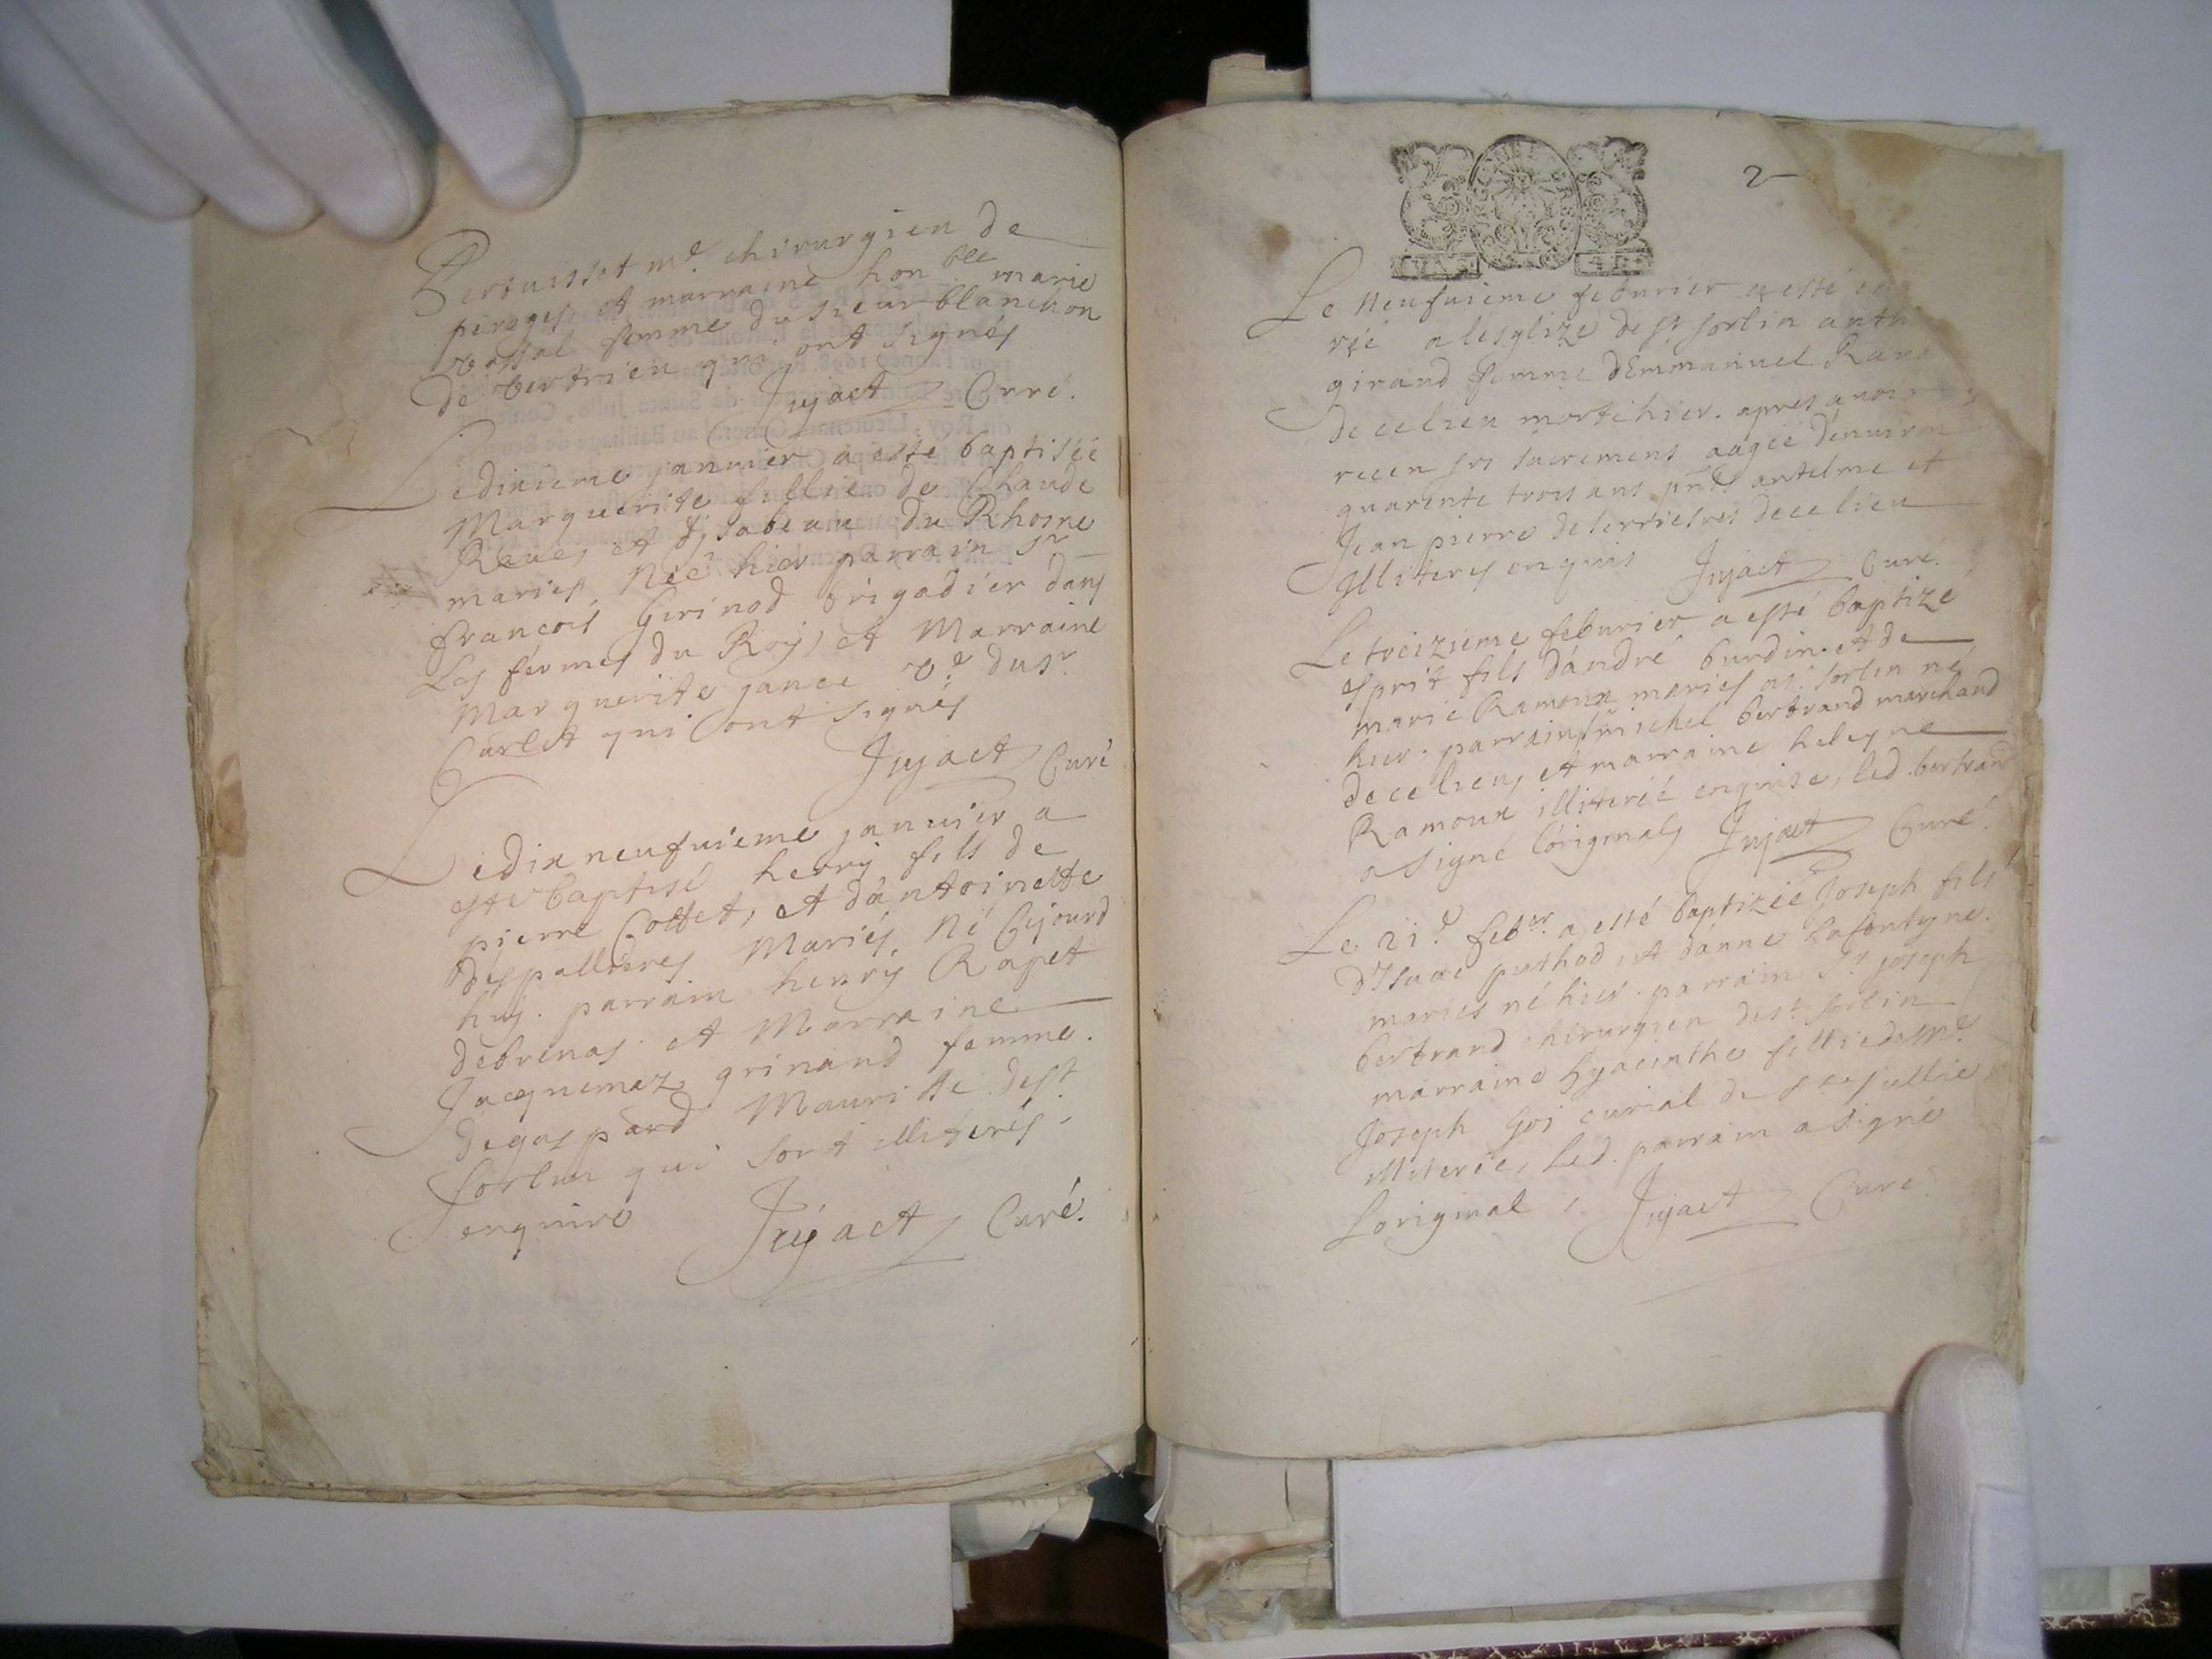 Pertuisset me. chirurgien de
peroges, et marraine honble marie
vassal femme du sieur blanchon
de vertrieu qui ont signés
Jujact Curé.
Le dixieme januier a esté baptisée
Marguerite fillie de Claude
Raue, et ysabeau du Rhosne
mariés, Née hier parrain sr
francois Girinod brigadier dans
Les fermes du Roy, et Marraine
Marguerite jance ve. du sr
Curlet qui ont signés
Jujact Curé
Le dix neufuieme januier a
este baptisé henry fils de
pierre Cottet, et d'antoinette
despallieres Mariés, Né cejourd
huy. parrain henry Rapet
de brenas et Marraine
Jacquemaz grinand femme
de gaspard Mauritte de st
sorlin qui sont illiterés,
enquire Jujact Curé.
2
Le Neufuieme feburier a esté
rée a lesglize de st sorlin anth
girand femme d'Emmanuel Ram
de ce lieu morte hier. apres auoir
receu ses sacremens aagée denuiron
quarente trois ans pnts antelme et
Jean pierre de serriesres de ce lieu
Illiteres enquis Jujact Curé.
Le treizieme feburier a esté baptizé
Esprit fils d'andré burdin et de
marie Ramoux mariés a st sorlin né
hier. parrain sr michel bertrand marchand
de ce lieu, et marraine heleyne
Ramoux illiterée enquise, led. bertrand
a signé l'original, Jujact Curé.
Le 21e. febvr. a esté baptizée Joseph fils
d'Isaac puthod, et d'anne lafonteyne.
mariés né hier. parrain sr joseph
bertrand chirurgien de st sorlin
marraine hyacinthe fillie de Me.
Joseph Goj curial de ste jullie
illiterée, led. parrain a signé
Loriginal, Jujact Curé